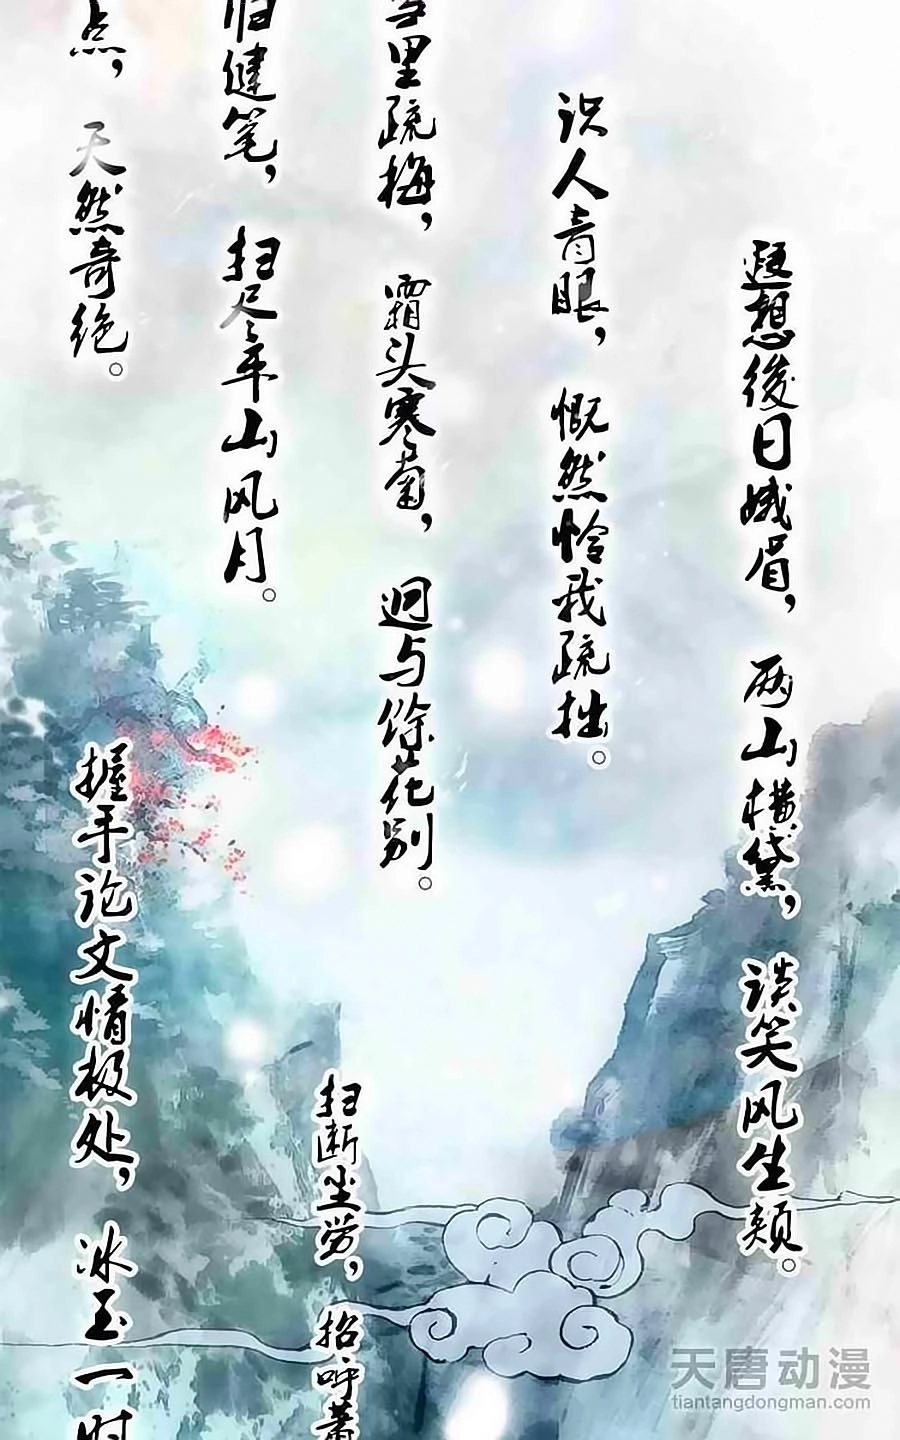 点，天然奇绝。
归健笔，扫尽平山风月。
雪里疏梅，霜头寒菊，迥与馀花别。
识人青眼，慨然怜我疏拙。
遐想後日娥眉，两山横黛，谈笑风生颊。
握手论文情极处，冰玉一时
扫断尘劳，招呼萧
天唐动漫
tiantangdongman.com